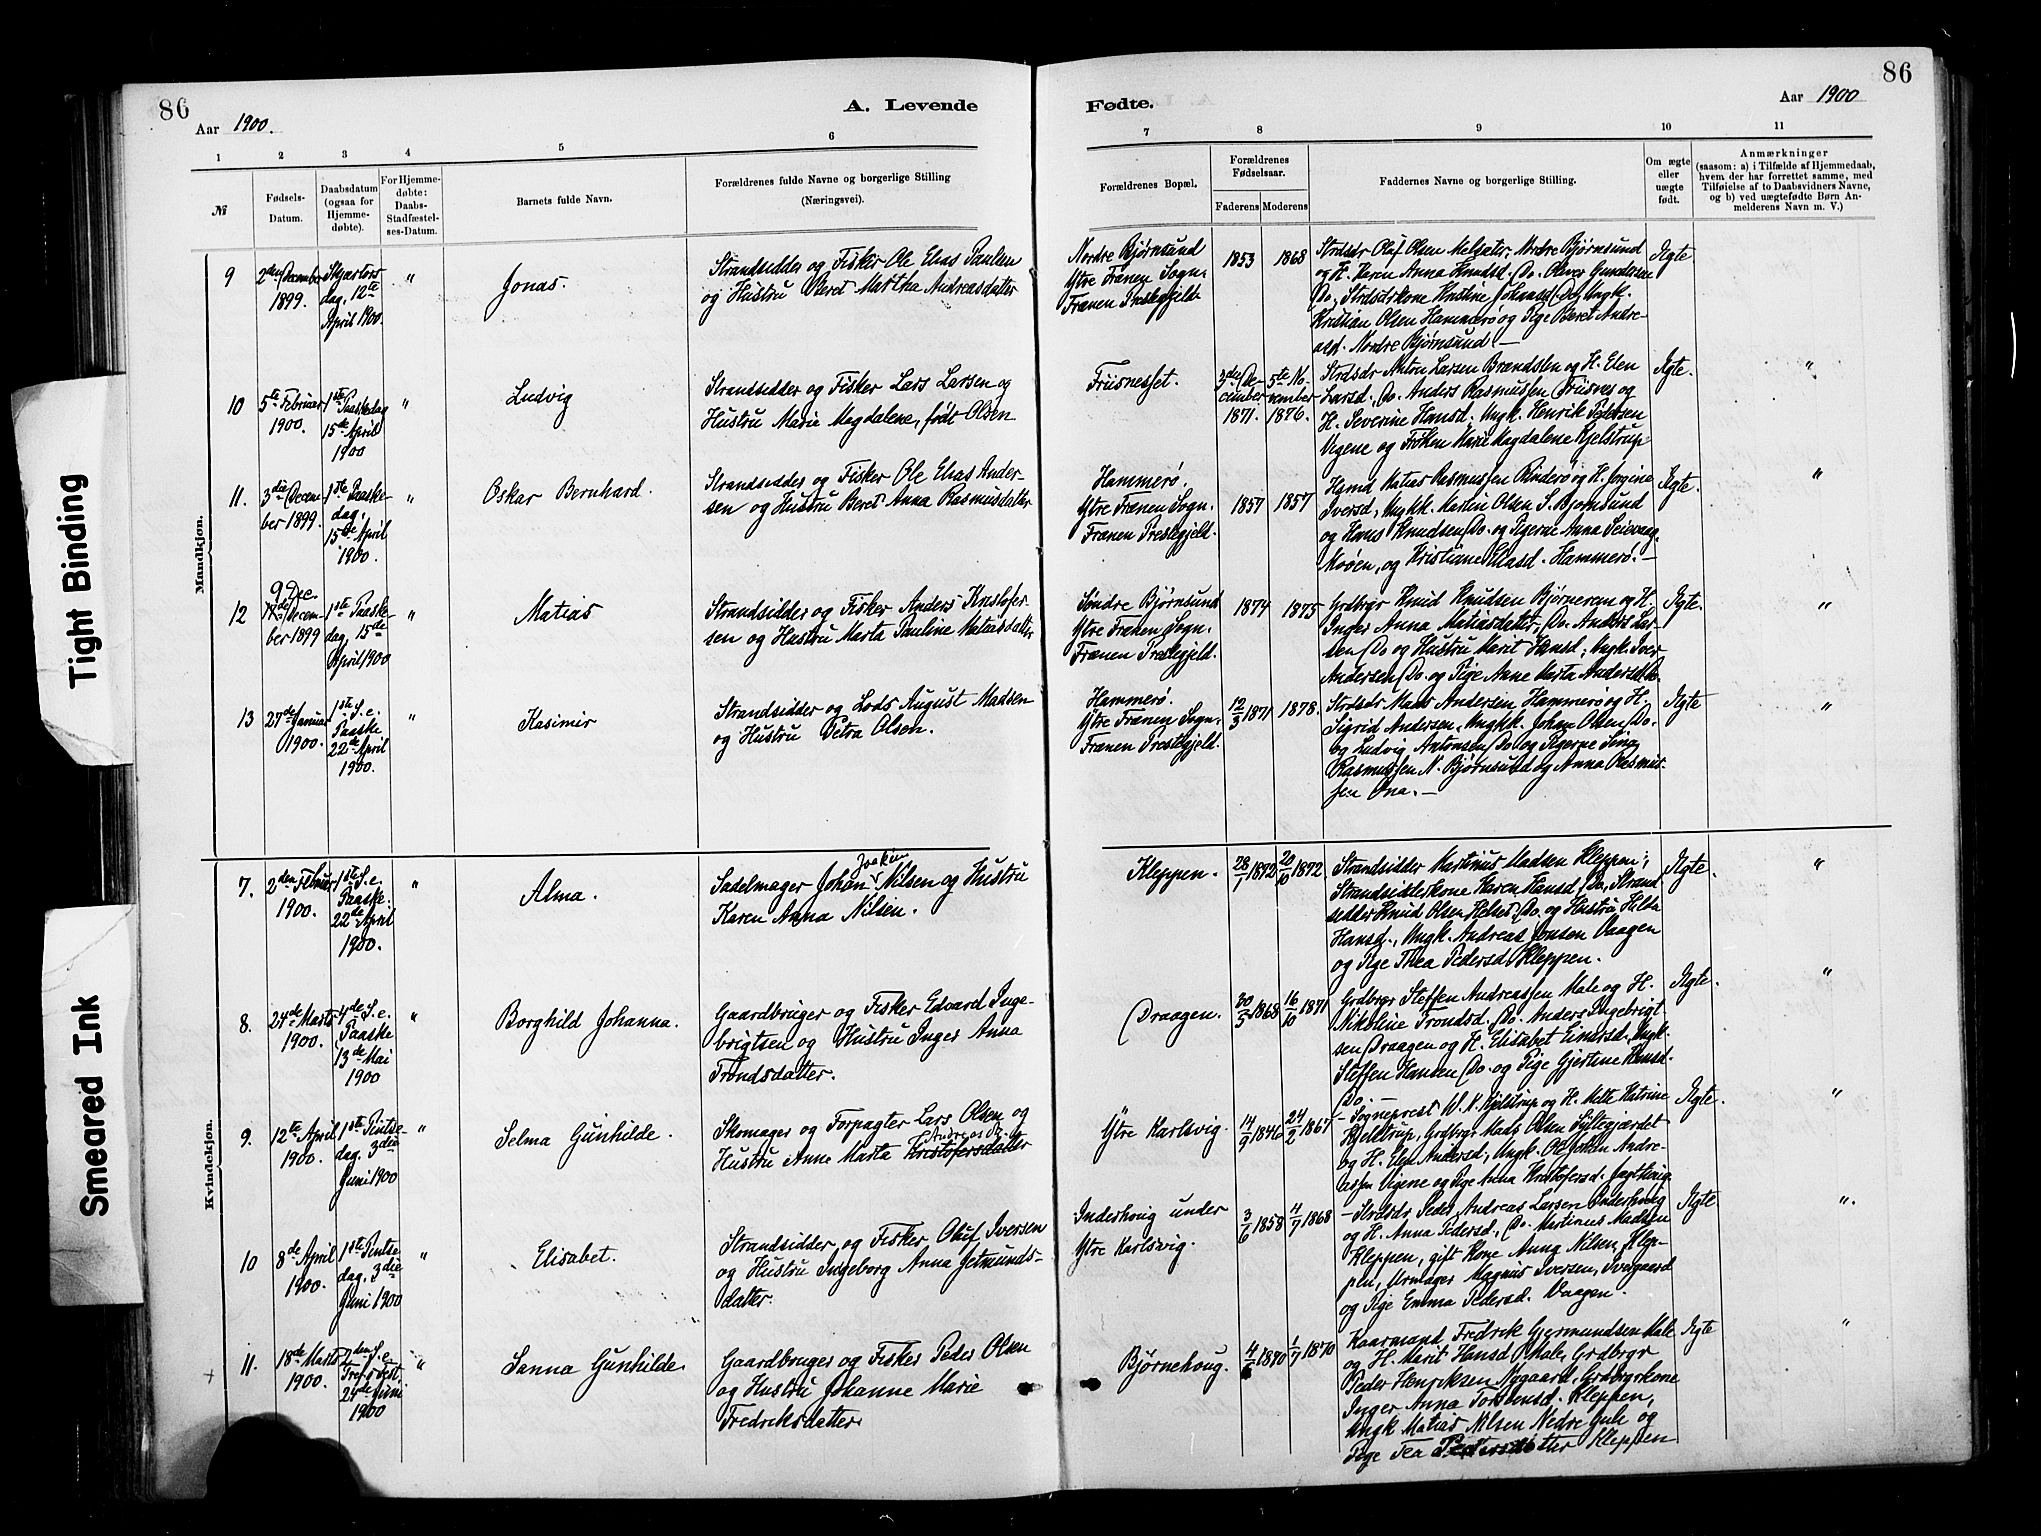 86
Aar 1900.
A. Levende
Fødte.
86
Aar 1900
Tight Binding
Smeared Ink
1 2 3 4 5 6
7 8 9 10 11
№
Fødsels-
Datum.
Daabsdatum
(ogsaa for
Hjemme-
døbte).
For Hjemme-
døbte:
Daabs-
Stadfæstel-
ses-Datum.
Barnets fulde Navn.
Forældrenes fulde Navne og borgerlige Stilling
(Næringsvei).
Forældrenes Bopæl.
Forældrenes
Fødselsaar.
Faderens Moderens
Faddernes Navne og borgerlige Stilling.
Om ægte
eller
uægte
født.
Anmærkninger
(saasom: a) i Tilfælde af Hjemmedaab,
hvem der har forrettet samme, med
Tilføielse af to Daabsvidners Navne,
og b) ved uægtefødte Børn An-
melderens Navn m. V.)
Mandkjøn.
9
2den December
1899.
Skjærtors
dag, 12te
April 1900.
"
Jonas.
Strandsidder og Fisker Ole Elias Paulsen
og Hustru Beret Martha Andreasdatter
Nordre Bjørnsund
Ytre Frænen Sogn,
Frænen Prestegjeld.
1853
1868
Strdsdr Oluf Olsen Melsæter, Nordre Bjørnsund
og H. Karen Anna Knudsd. Do. Oliver Gundersen
Do, Strdsdrkone Kristine Johnasd. Do, Ungk.
Kristian Olsen Hammerø og Pige Beret Andre-
asd. Nordre Bjørnsund. —
Ægte
10
5te Februar
1900.
1ste Paaskedag
15de April
1900
"
Ludvig
Strandsidder og Fisker Lars Larsen og
Hustru Marie Magdalene, født Olsen
Friisnesset.
3die De-
cember
1871.
5te No-
vember
1876.
Strdsdr Anton Larsen Brændslen og H. Elen
Larsd. Do. Anders Rasmussen Friisnes og
H. Severine Hansd; Ungk. Henrik Pedersen
Vigene og Frøken Marie Magdalene Kjelstrup
Ægte.
"
11.
3die Decem-
ber 1899.
1ste Paaske-
dag,
15de April
1900.
"
Oskar Bernhard.
Strandsidder og Fisker Ole Elias Ander-
sen og Hustru Beret Anna Rasmusdatter
Hammerø.
Ytre Frænen Sogn.
Frænen Prestegjeld.
1857
1857
Matias Rasmussen Binderø og H.
Iversd, Ungkk. Martin Olsen S. Bjørnsund
og Hans Knudsen Do. og Pigerne Anna
Moøen, og Kristiane Eliasd. Hammerø. —
Ægte.
"
12
9 Dec
Decem-
ber 1899
1ste Paaske-
dag, 15de
April 1900
"
Matias
Strandsidder og Fisker Anders Kristofer-
sen og Hustru Marta Pauline Matiasdatter
Søndre Bjørnsund
Ytre Frænen Sogn.
Frænen Prestegjeld.
1874
1875
Grdbrgr Knud Knudsen Bjørnerem og H.
Inger Anna Matiasdatter, Do. Anders Lar-
sen Do og Hustru Marit Hansd, Ungk. Iver
Andersen Do. og Pige Anne Marta Andersd. Do.
Ægte.
"
13
27de Januar
1900.
1ste S. e.
Paaske
22de April
1900.
"
Kasimir
Strandsidder og Lods August Madsen
og Hustru Petra Olsen.
Hammerø.
Ytre Frænen Sogn.
Frænen Prestegjeld.
12/3 1871
1878.
Strdsdr Mads Andersen Hammerø og H.
Sigrid Andersen, Ungkk. Johan Olsen Do.
og Ludvig Antonsen Do og Pigerne Sina
Rasmussen N. Bjørnsund og Anna Rasmus-
sen Ona. —
Ægte
"
Kvindekjøn.
7.
2den Februar
1900.
1ste S. e.
Paaske
22de April
1900.
"
Alma.
Joakim
Sadelmager Johan Nilsen og Hustru
Karen Anna Nilsen.
Kleppen.
28/7 1872
20/10 1872
Strandsidder Martinus Madsen Kleppen,
Strandsidderkone Karen Hansd. Do, Strand-
sidder Knud Olsen Helset Do. og Hustru Hilda
Hansd., Ungk. Andreas Jonsen Vaagen
og Pige Thea Pedersd. Kleppen.
Ægte.
"
8.
24de Marts
1900.
4de S. e.
Paaske
13de Mai
1900
"
Borghild Johanna.
Gaardbruger og Fisker Edvard Inge-
brigtsen og Hustru Inger Anna
Trondsdatter.
Draagen.
30/5 1868
16/10 1871
Grdbrgr Steffen Andreassen Male og H.
Nikoline Trondsd. Do. Anders Ingebrigt-
sen Draagen og H. Elisabet Einarsd., Ungk.
Steffen Hansen Do. og Pige Gjertine Hansd.
Do. —
Ægte.
"
9.
12te April
1900.
1ste Pintse-
dag. 3die
Juni 1900
"
Selma Gunhilde.
Skomager og Forpagter Lars Olsen og
Andreasdr.
Hustru Anne Marta Kristofersdatter
Ytre Karlsvig.
14/9 1846
24/2 1867
— Sogneprest W. K. Kjelstrup og H. Mette Katrine
Kjelstrup, Grdbrgr Mads Olsen Syltegjærdet
og H. Elen Andersd; Ungk. Ole Johan Andre-
assen Vigene og Pige Anna Kristofersd.
Ægte.
"
10
8de April
1900.
1ste Pintse-
dag, 3die
Juni 1900
"
Elisabet.
Strandsidder og Fisker Oluf Iversen
og Hustru Ingeborg Anna Jetmunds-
datter.
Inderhoug under
Ytre Karlsvig.
3/6 1858
4/7 1868
— Strdsdr Peder Andreas Larsen Inderhoug
og H. Anna Pedersd, Do. Martinus Madsen
Kleppen, gift Kone Anna Nilsen, Klep-
pen, Urmager Magnus Iversen,
og Pige Emma Pedersd. Vaagen.
Ægte
".
+
11.
18de Marts
1900.
2den S. e.
Tref.fest.
24de Juni
1900
"
Sanna Gunhilde.
Gaardbruger og Fisker Peder Olsen
og Hustru Johanne Marie
Fredriksdatter.
Bjørnehoug.
4/6 1870
1/7 1870
Kaarmand Fredrik Gjermundsen Male
og H. Marit Hansd Male, Grdbrgr
Peder Henriksen Nygaard, Grdbrgrkone
Inger Anna Torstensd. Kleppen,
Ungk Matias Nilsen Nedre Gule og
Pige Tea Pedersdatter Kleppen
Ægte
"